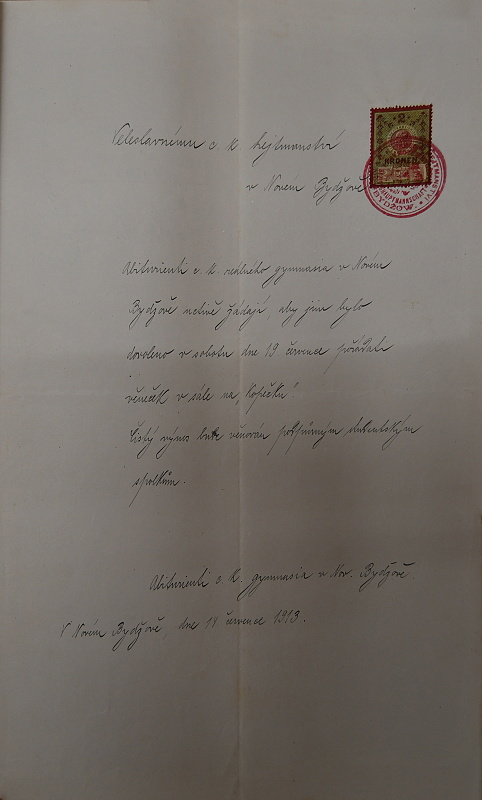 2
KRONEN
HAUPTMANNSCHAFT
BYDŽOV
Veleslavnému c. k. hejtmanství
v Novém Bydžově
Abiturienti c. k. reálného gymnasia v Novém
Bydžově uctivě žádají, aby jim bylo
dovoleno v sobotu dne 19. července pořádati
věneček v sále na „Kopečku".
Čistý výnos bude věnován podpůrným studentským
spolkům.
Abiturienti c. k. gymnasia v Nov. Bydžově.
V Novém Bydžově, dne 14. července 1913.